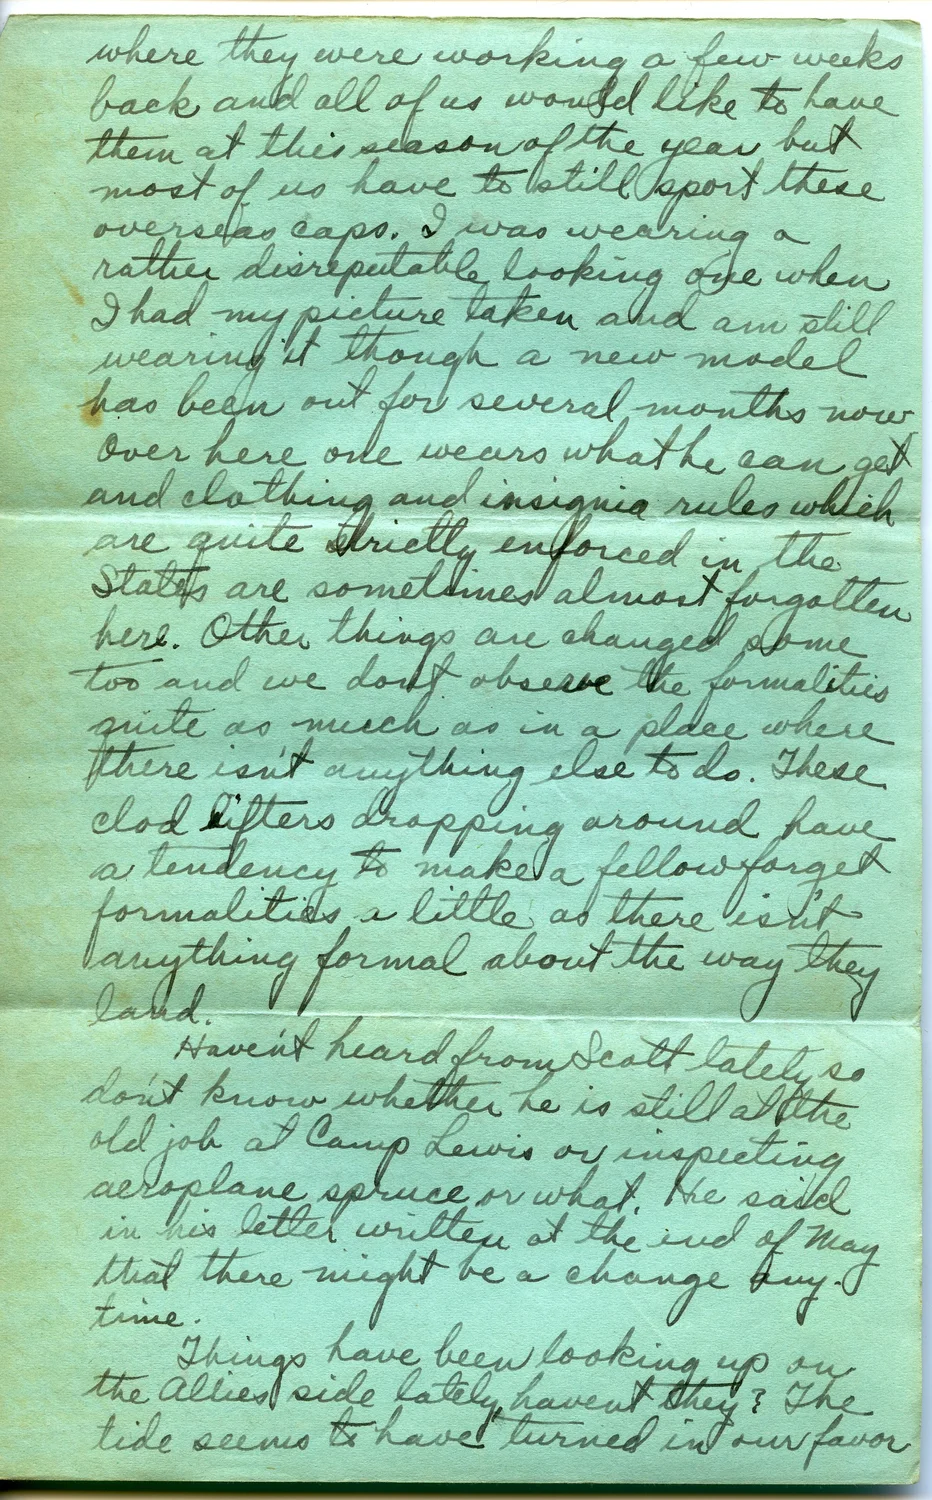 where they were working a few weeks
back and all of us would like to have
them at this season of the year but
most of us have to still sport these
overseas caps. I was wearing a
rather disreputable looking one when
I had my picture taken and am still
wearing it though a new model
has been out for several months now
Over here one wears what he can get
and clothing and insignia rules which
are quite strictly enforced in the
States are sometimes almost forgotten
here. Other things are changed some
too and we don't observe the formalities
quite as much as in a place where
there isn't anything else to do. These
clod lifters dropping around have
a tendency to make a fellow forget
formalities a little as there isn't
anything formal about the way they
land.
Haven't heard from Scott lately so
don't know whether he is still at the
old job at Camp Lewis or inspecting
aeroplane spruce or what. He said
in his letter written at the end of May
that there might be a change any-
time.
Things have been looking up on
the Allies side lately, havent they? The
tide seems to have turned in our favor